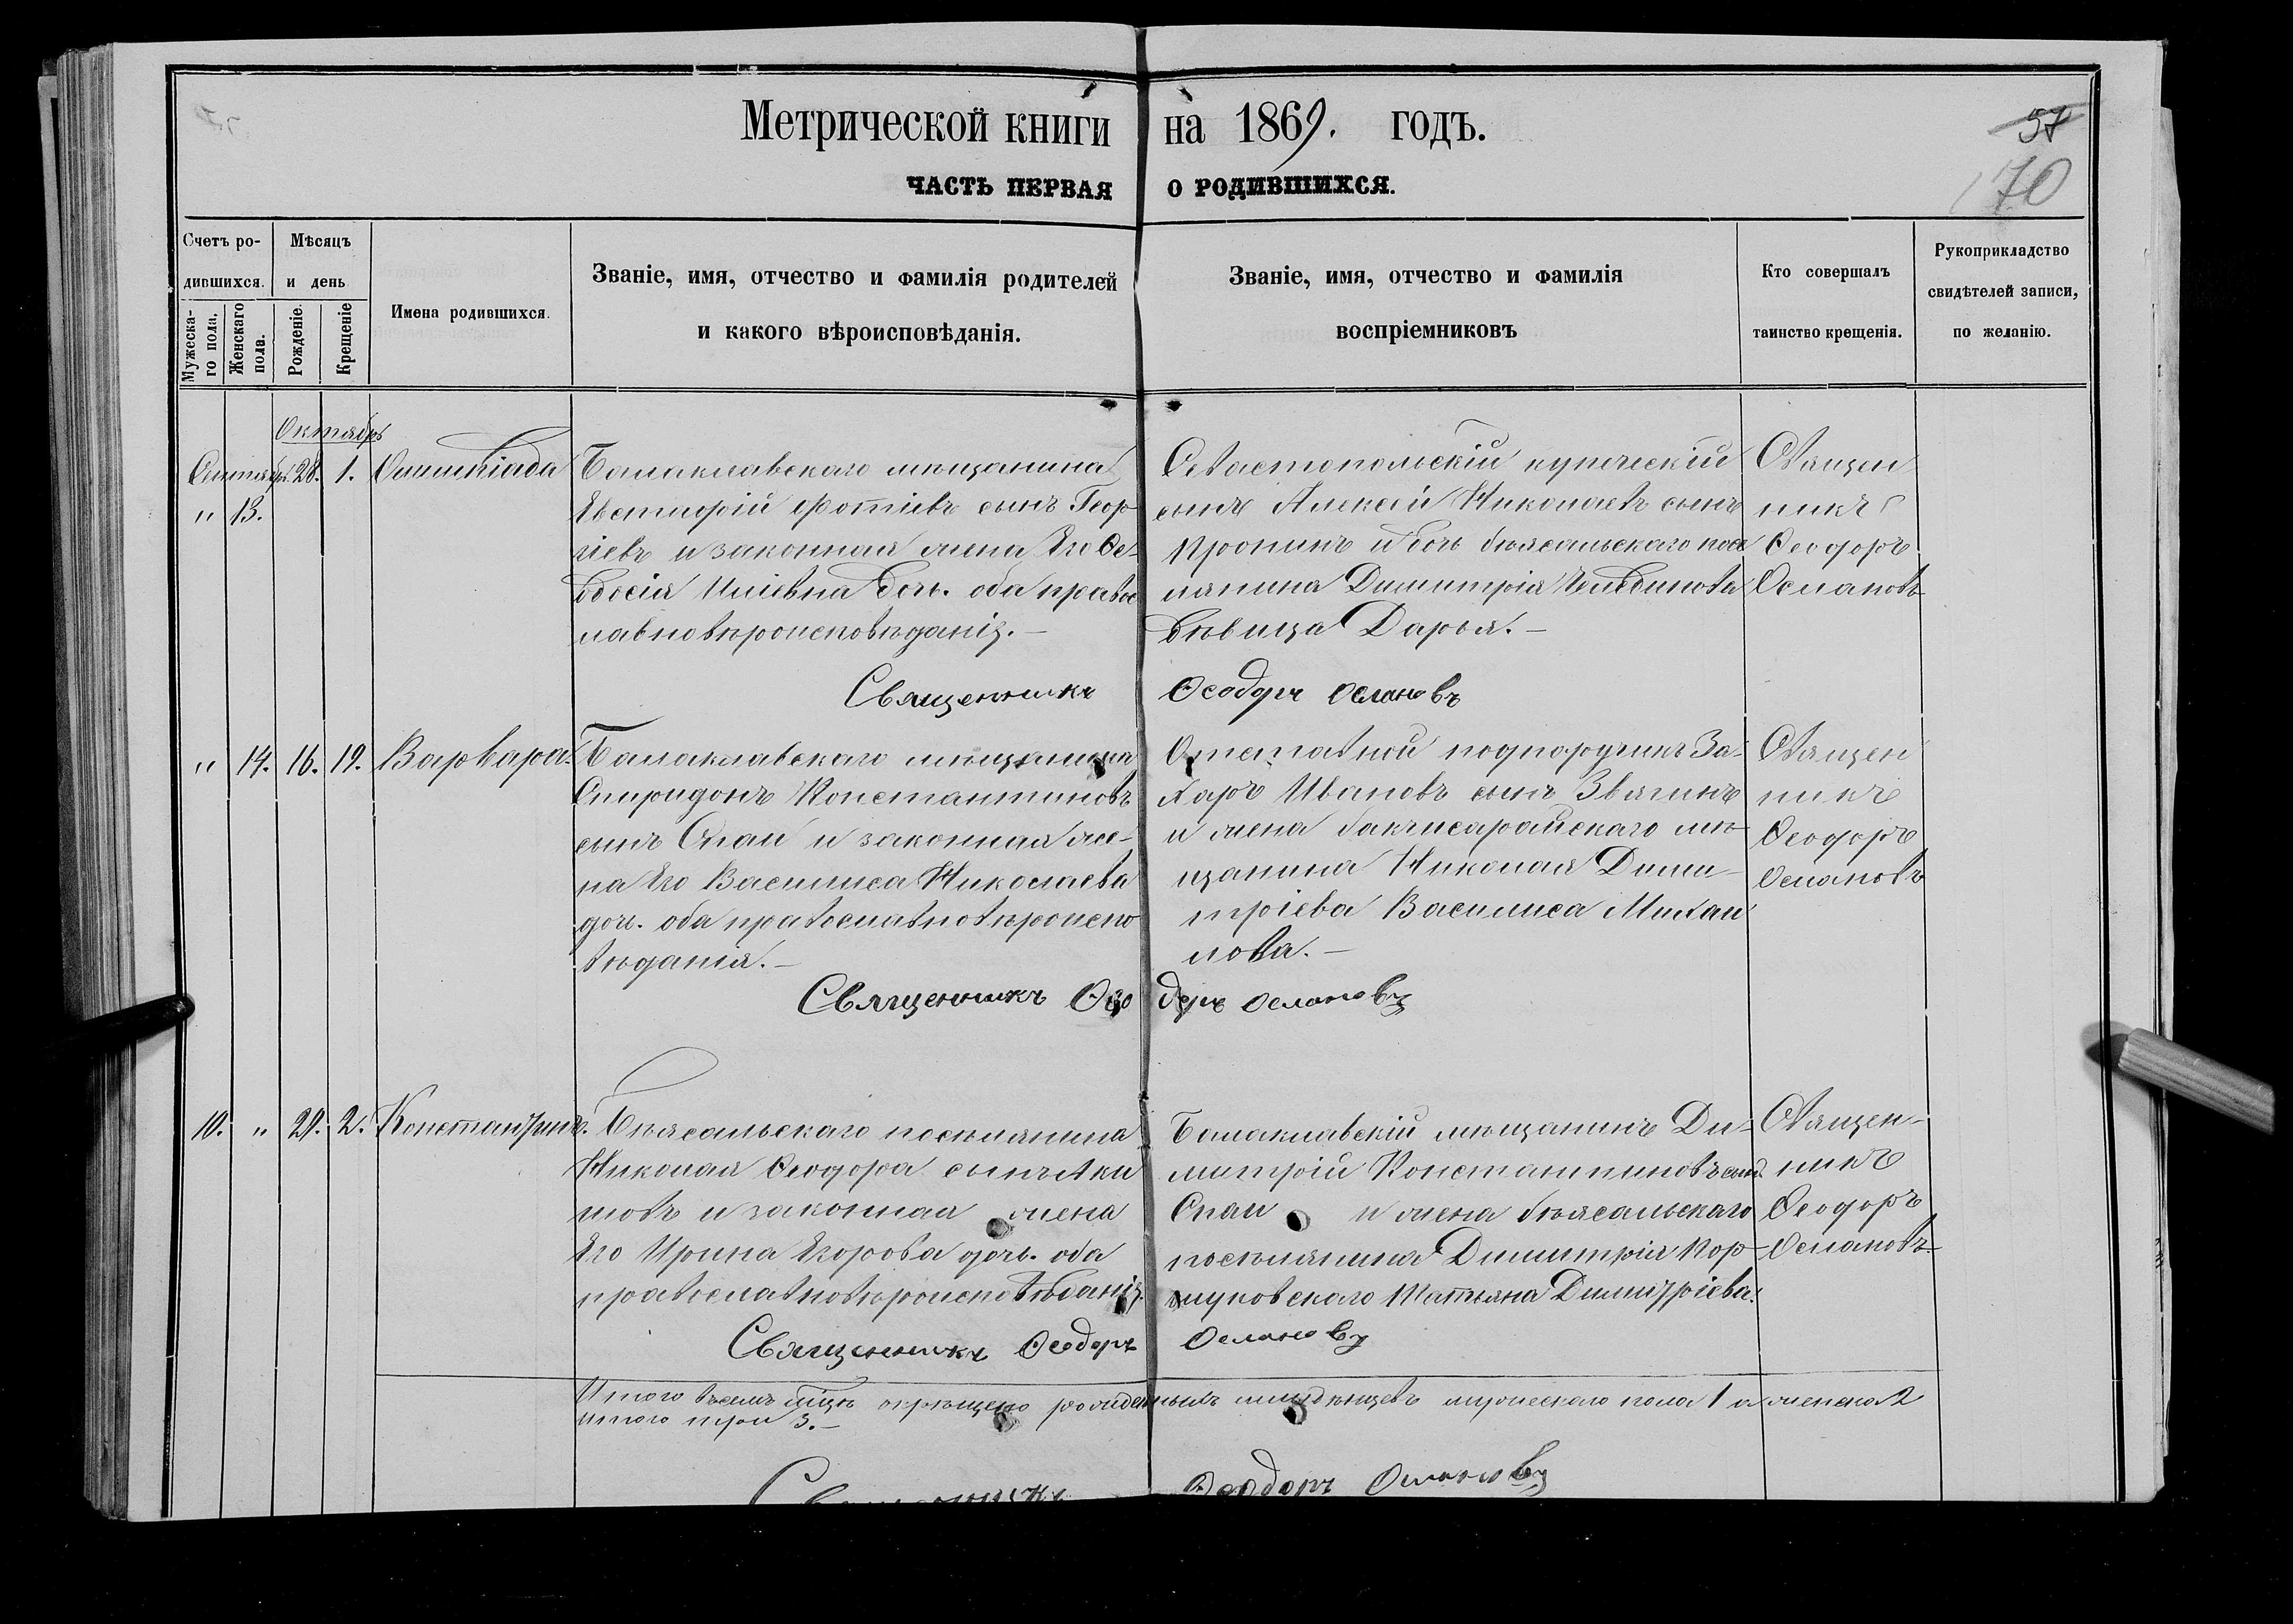 Метрической книги на 1869. годъ.
57
170
ЧАСТЬ ПЕРВАЯ О РОДИВШИХСЯ.
Счетъ ро-
дившихся.
Мужеска-
го пола.
Женскаго
пола.
Мѣсяцъ
и день
Рожденіе.
Крещеніе
Имена родившихся.
Званіе, имя, отчество и фамилія родителей
и какого вѣроисповѣданія.
Званіе, имя, отчество и фамилія
воспріемниковъ
Кто совершалъ
таинство крещенія.
Рукоприкладство
свидѣтелей записи,
по желанію.
Октябрь
28. 1.
" 13.
Балаклавскаго мѣщанина
фотіевъ сынъ Геор
гіевъ и законная жена Его Ѳе-
одосія Иліевна дочь. оба правос
лавновѣроисповѣданія.—
Севастопольскій купеческій
сынъ Алексѣй Николаевъ сынъ
Пронинъ и дочь біясальскаго посе
лянина Димитрія
дѣвица Дарья.—
Священ
никъ
Ѳеодоръ
Османовъ
Священникъ Ѳеодоръ Османовъ
" 14. 16. 19. Варвара.
Балаклавскаго мѣщанина
Спиридонъ Константиновъ
сынъ Спаи и законная же-
на Его Василиса Николаева
доч. оба православновѣроиспо
вѣданія.—
Отставной подпоручикъ За-
харъ Ивановъ сынъ Звягинъ
и жена бакчисарайскаго мѣ
щанина Николая Дими-
тріева Василиса Михаи
лова.—
Священ
никъ
Ѳеодоръ
Османовъ
Священникъ Ѳеодоръ Османовъ
10. " 29. 2. Константинъ.
Біясальскаго поселянина
Николая Ѳеодора сынъ Аки
мовъ и законная жена
Его Ирина Егорова дочь. оба
православновѣроисповѣданія.
Балаклавскій мѣщанинъ Ди-
митрій Константиновъ сынъ
Спаи и жена біясальскаго
поселянина Димитрія Кор-
жуковскаго Татьяна Димитріева.
Священ-
никъ
Ѳеодоръ
Османовъ
Священникъ Ѳеодоръ Османовъ
Итого всемъ окрещено рожденныхъ младенцевъ мужескаго пола 1 а женска 2
итого три 3.—
Священникъ Ѳеодоръ Османовъ